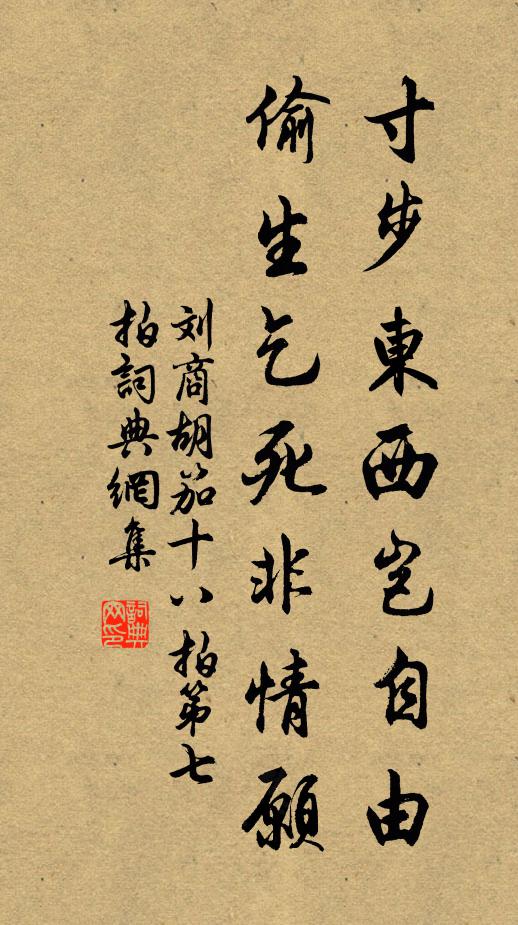 寸步東西豈自由
偷生乞死非情願
刘商胡笳十八拍第七
拍詞典網集
詞典
网印